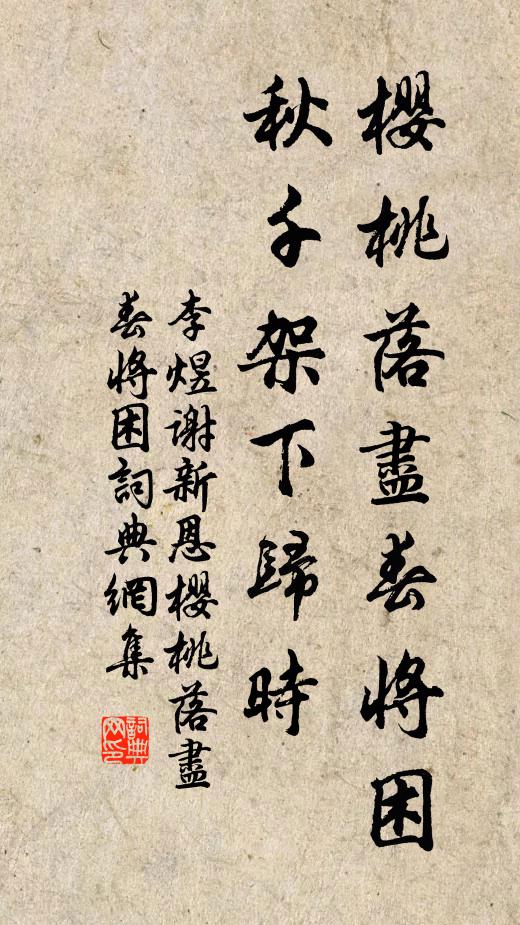 櫻桃落盡春將困
秋千架下歸時
李煜謝新恩櫻桃落盡
春將困詞典網集
詞典网印